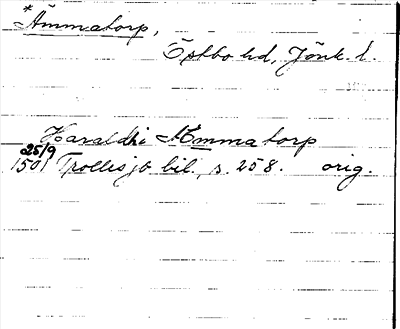 *Ämmatorp,
Östbo hd, Jönk. l.
Haraldhi Æmmatorp
25/9
1501 Trolles jb bil., s. 258. orig.